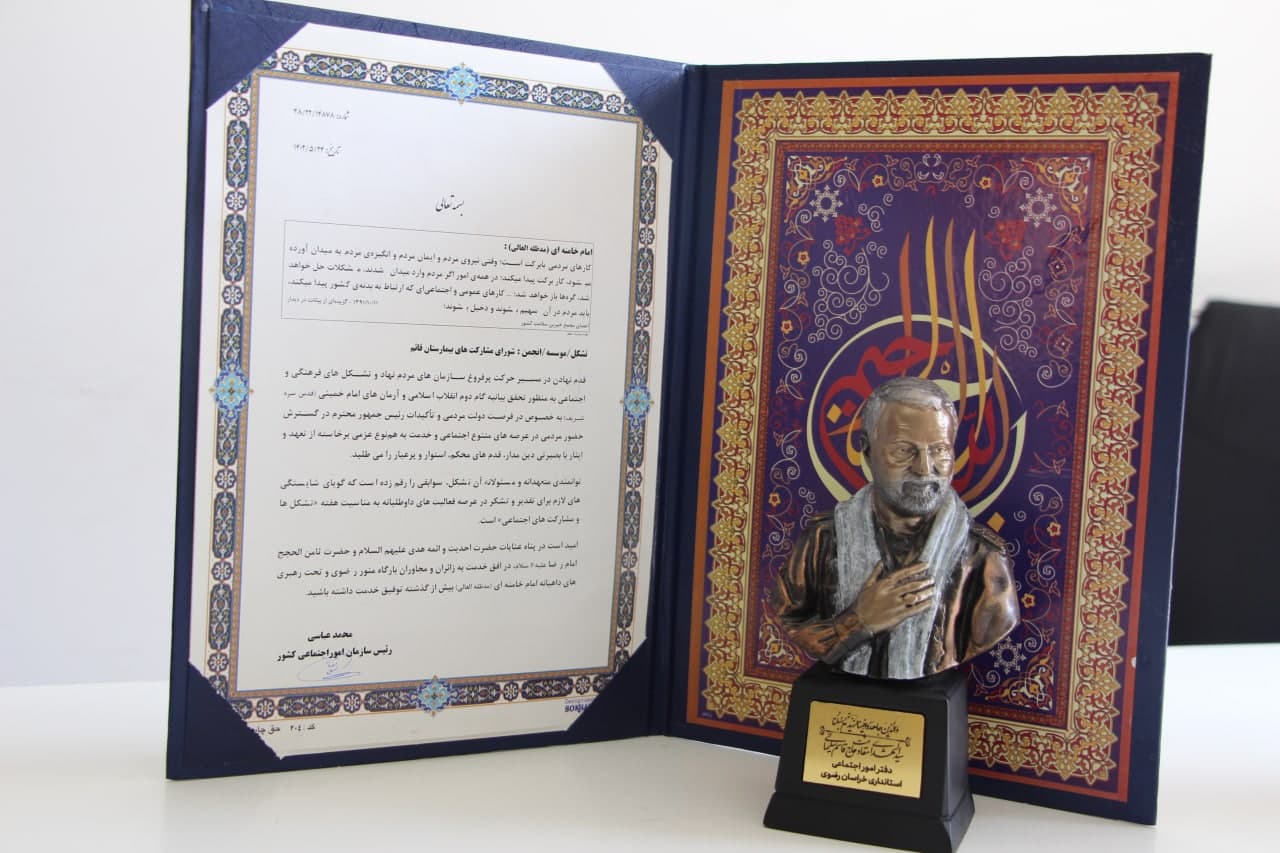 شماره: ۳۸/۲۲/۱۴۸۷۸
تاریخ: ۱۴۰۲/۵/۲۴
بسمه تعالی
امام خامنه ای (مدظله العالی) :
کارهای مردمی بابرکت است؛ وقتی نیروی مردم و ایمان مردم و انگیزه‌ی مردم به میدان آورده
می شود، کار برکت پیدا میکند؛ در همه‌ی امور اگر مردم وارد میدان شدند، مشکلات حل خواهد
شد، گره‌ها باز خواهد شد؛ .. کارهای عمومی و اجتماعی‌ای که ارتباط به بدنه‌ی کشور پیدا میکند،
باید مردم در آن سهیم شوند و دخیل شوند؛ گزیده‌ای از بیانات در دیدار
اعضای مجمع خیرین سلامت کشور
تشکل/موسسه/انجمن : شورای مشارکت های بیمارستان قائم
قدم نهادن در مسیر حرکت پرفروغ سازمان های مردم نهاد و تشکل های فرهنگی و
اجتماعی به منظور تحقق بیانیه گام دوم انقلاب اسلامی و آرمان های امام خمینی (قدس سره
شریف) به خصوص در فرصت دولت مردمی و تأکیدات رئیس جمهور محترم در گسترش
حضور مردمی در عرصه های متنوع اجتماعی و خدمت به هم‌نوع عزمی برخاسته از تعهد و
ایثار با بصیرتی دین مدار، قدم های محکم، استوار و پرعیار را می طلبد.
توانمندی متعهدانه و مسئولانه آن تشکل، سوابقی را رقم زده است که گویای شایستگی
های لازم برای تقدیر و تشکر در عرصه فعالیت های داوطلبانه به مناسبت هفته «تشکل ها
و مشارکت های اجتماعی» است.
امید است در پناه عنایات حضرت احدیت و ائمه هدی علیهم السلام و حضرت ثامن الحجج
امام رضا علیه السلام، در افق خدمت به زائران و مجاوران بارگاه منور رضوی و تحت رهبری
های داهیانه امام خامنه ای (مدظله العالی) بیش از گذشته توفیق خدمت داشته باشید.
محمد عباسی
رئیس سازمان امور اجتماعی کشور
کد: ۲۰٤ حق چاپ
بسم الله الرحمن الرحیم
سیدالشهدای مقاومت حاج قاسم سلیمانی
دفتر امور اجتماعی
استانداری خراسان رضوی